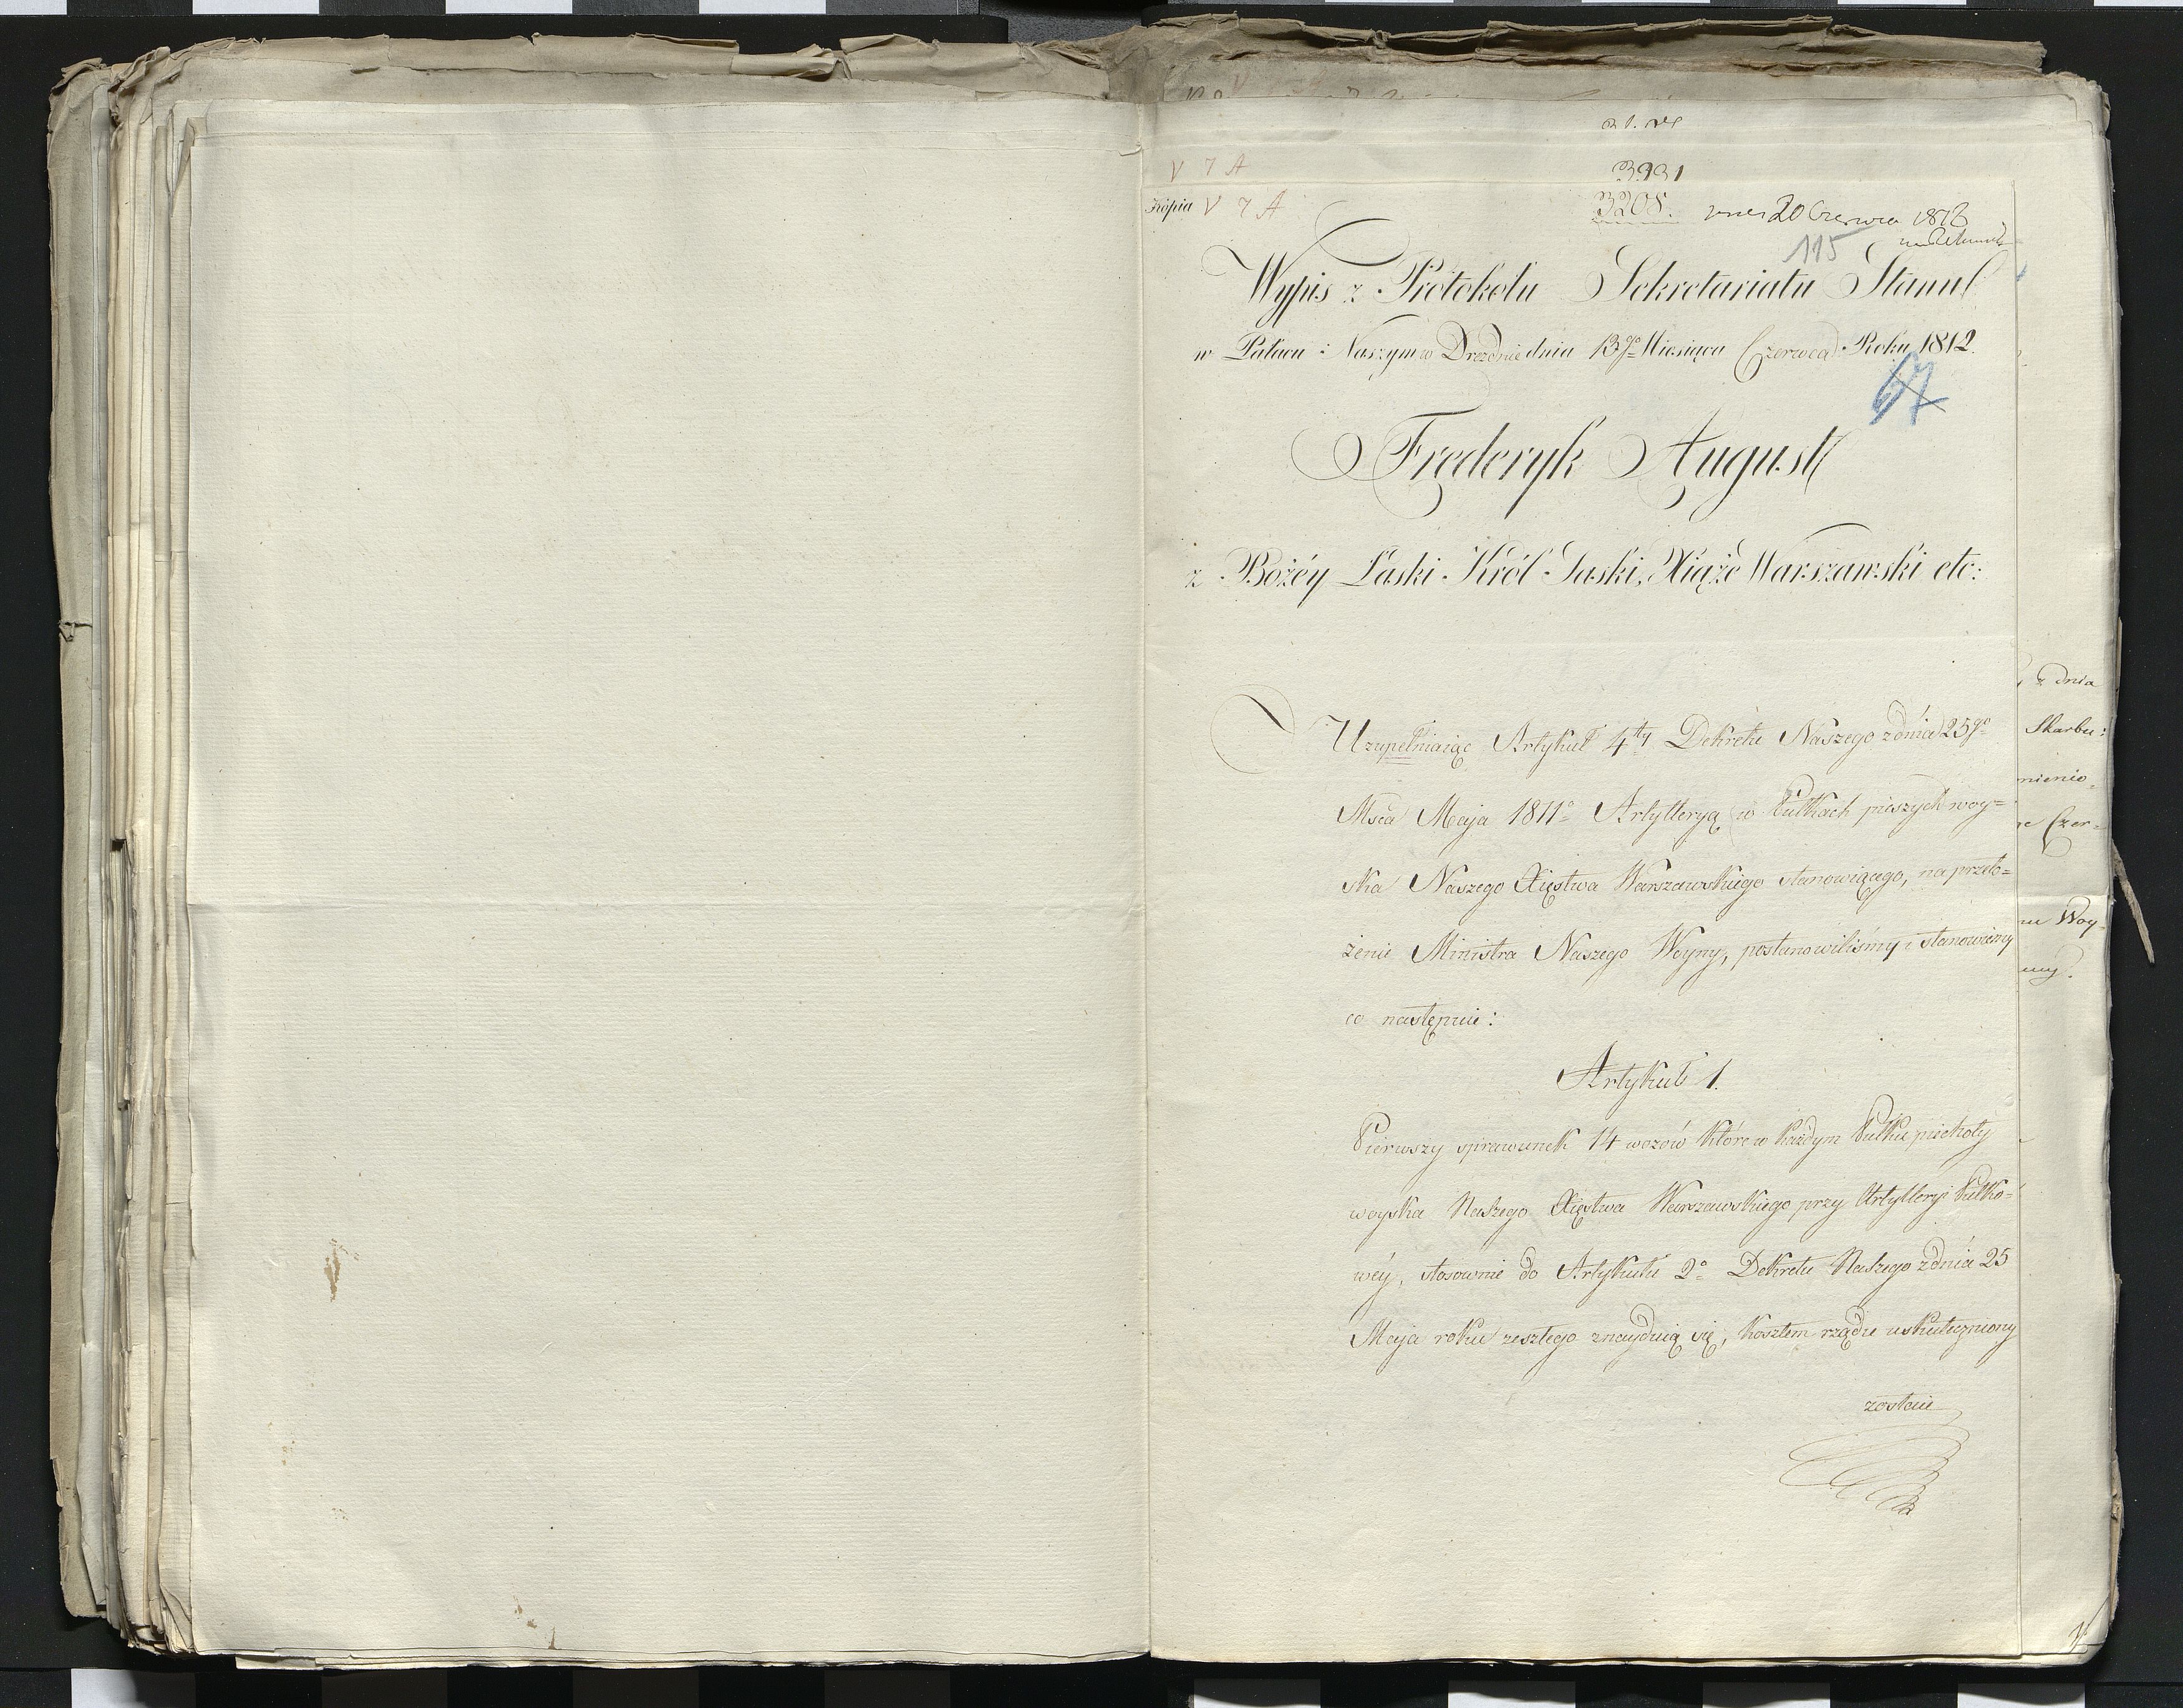 V 7 A
3991
Kopia V 7 A
3208. dnia 20 Czerwca 1812
115
Wypis z Protokołu Sekretariatu Stanu
w Pałacu Naszym w Dreźnie dnia 13go Miesiąca Czerwca Roku 1812.
67
Frederyk August
z Bożéy Łaski Król Saski, Xiąże Warszawski etc:
Uzupełniaiąc Artykuł 4ty Dekretu Naszego z dnia 25go
Msca Maja 1811o Artylleryą w Pułkach pieszych woy=
ska Naszego Xięstwa Warszawskiego stanowiącego, na przeło=
żenie Ministra Naszego Woyny, postanowiliśmy i stanowiemy
co następuie:
Artykuł 1.
Pierwszy sprawunek 14 wozów które w każdym Pułku piechoty
woyska Naszego Xięstwa Warszawskiego przy Artylleryi Pułko=
wéy, stosownie do Artykułu 2o Dekretu Naszego z dnia 25
Maja roku zeszłego znayduią się, kosztem rządu uskuteczniony
zostanie
z dnia
Skarbu:
mienio
Czer=
Woy-